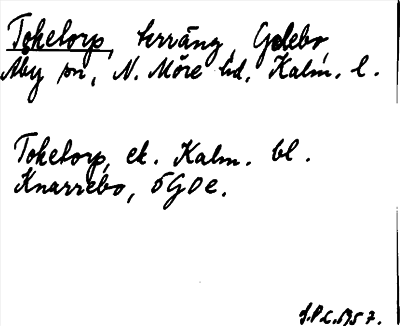 Toketorp, terräng, Gelebo,
Åby sn, N. Möre hd, Kalm. l.
Toketorp, ek. Kalm. bl.
Knarrebo, 5G0e.
1957.